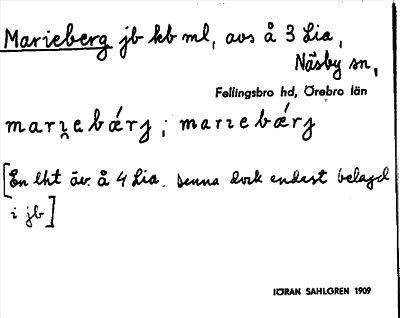 Marieberg jb kb ml, avs å 3 Lia,
Näsby sn,
Fellingsbro hd, Örebro län
marɪ̯ebǽrj ; marɪebǽrj
[En lht äv. å 4 Lia. Denna dock endast belagd
i jb]
JÖRAN SAHLGREN 1909